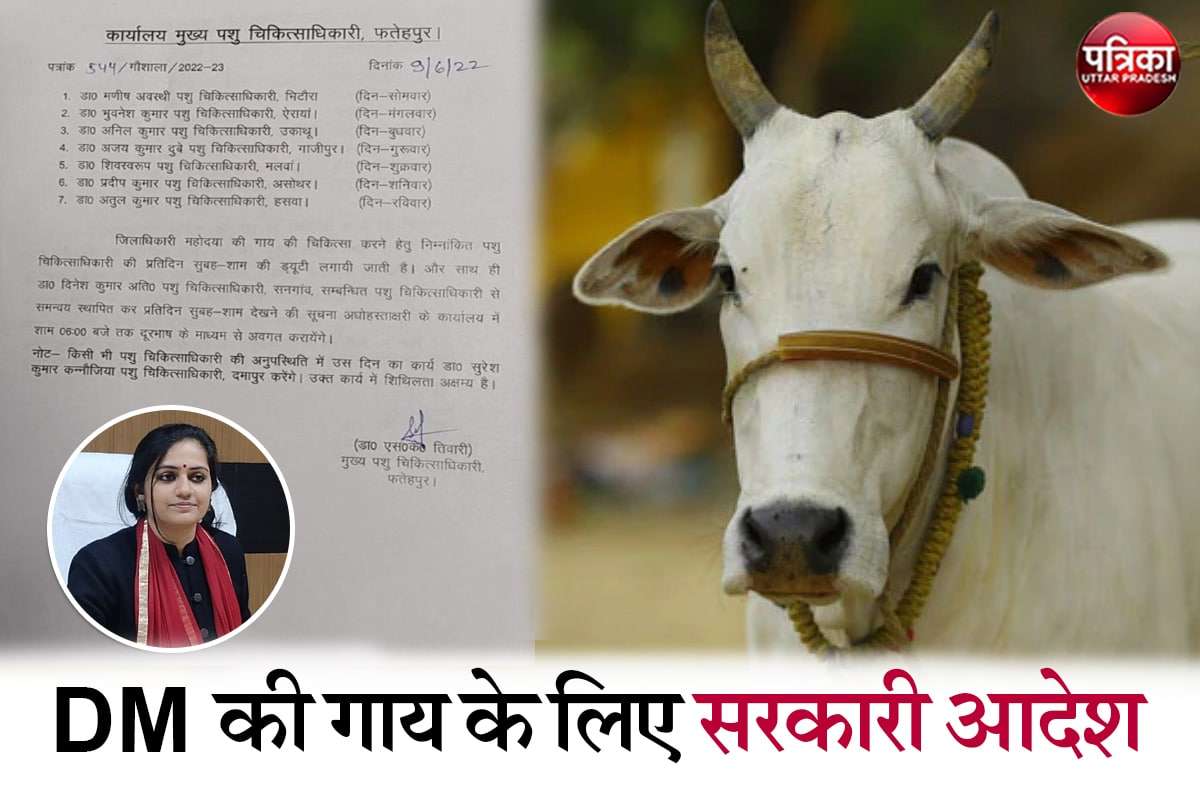 कार्यालय मुख्य पशु चिकित्साधिकारी, फतेहपुर।
पत्रांक 544/गौशाला/2022-23 दिनांक 9/6/22
1. डा0 मनीष अवस्थी पशु चिकित्साधिकारी, भिटौरा (दिन–सोमवार)
2. डा0 भुवनेश कुमार पशु चिकित्साधिकारी, ऐरायां। (दिन–मंगलवार)
3. डा0 अनिल कुमार पशु चिकित्साधिकारी, उकाथू। (दिन–बुधवार)
4. डा0 अजय कुमार दुबे पशु चिकित्साधिकारी, गाजीपुर। (दिन–गुरूवार)
5. डा0 शिवस्वरूप पशु चिकित्साधिकारी, मलवां। (दिन–शुक्रवार)
6. डा0 प्रदीप कुमार पशु चिकित्साधिकारी, असोथर। (दिन–शनिवार)
7. डा0 अतुल कुमार पशु चिकित्साधिकारी, हसवा। (दिन–रविवार)
जिलाधिकारी महोदया की गाय की चिकित्सा करने हेतु निम्नांकित पशु
चिकित्साधिकारी की प्रतिदिन सुबह–शाम की ड्यूटी लगायी जाती है। और साथ ही
डा0 दिनेश कुमार अति0 पशु चिकित्साधिकारी, सनगांव, सम्बन्धित पशु चिकित्साधिकारी से
समन्वय स्थापित कर प्रतिदिन सुबह–शाम देखने की सूचना अधोहस्ताक्षरी के कार्यालय में
शाम 06:00 बजे तक दूरभाष के माध्यम से अवगत करायेंगे।
नोट– किसी भी पशु चिकित्साधिकारी की अनुपस्थिति में उस दिन का कार्य डा0 सुरेश
कुमार कन्नौजिया पशु चिकित्साधिकारी, दमापुर करेंगे। उक्त कार्य में शिथिलता अक्षम्य है।
(डा0 एस0के0 तिवारी)
मुख्य पशु चिकित्साधिकारी,
फतेहपुर।
पत्रिका
UTTAR PRADESH
DM की गाय के लिए सरकारी आदेश